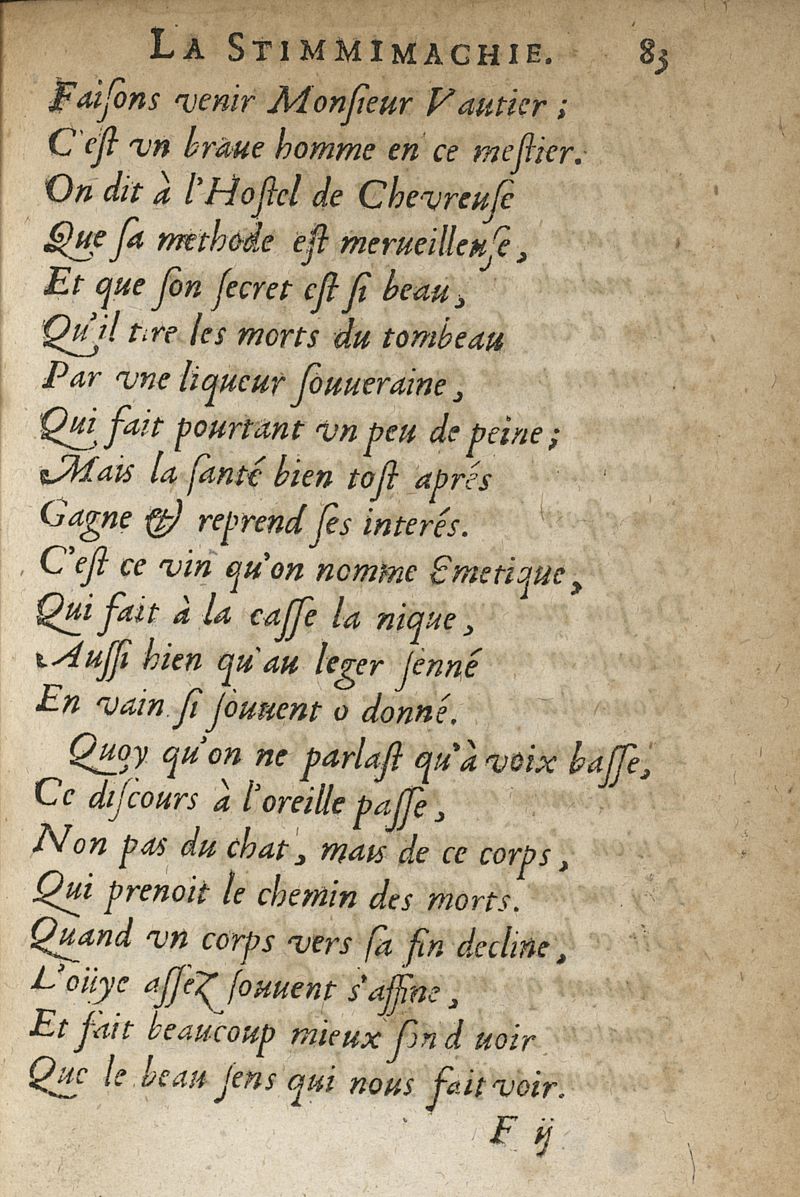 LA STIMMIMACHIE. 83
Faiſons venir Monſieur Vautier ;
C'eſt vn braue homme en ce meſtier.
On dit à l'Hoſtel de Chevreuſe
Que ſa methode eſt merueilleuſe,
Et que ſon ſecret eſt ſi beau,
Qu'il tire les morts du tombeau
Par vne liqueur ſouueraine,
Qui fait pourtant vn peu de peine ;
Mais la ſanté bien toſt aprés
Gagne & reprend ſes interés.
C'eſt ce vin qu'on nomme Emetique,
Qui fait à la caſſe la nique,
Auſſi bien qu'au leger ſenné
En vain ſi ſouuent o donné.
Quoy qu'on ne parlaſt qu'à voix baſſe,
Ce diſcours à l'oreille paſſe,
Non pas du chat, mais de ce corps,
Qui prenoit le chemin des morts.
Quand vn corps vers ſa fin decline,
L'oüye aſſez ſouuent s'affine,
Et fait beaucoup mieux ſon d uoir
Que le beau ſens qui nous fait voir.
F ij